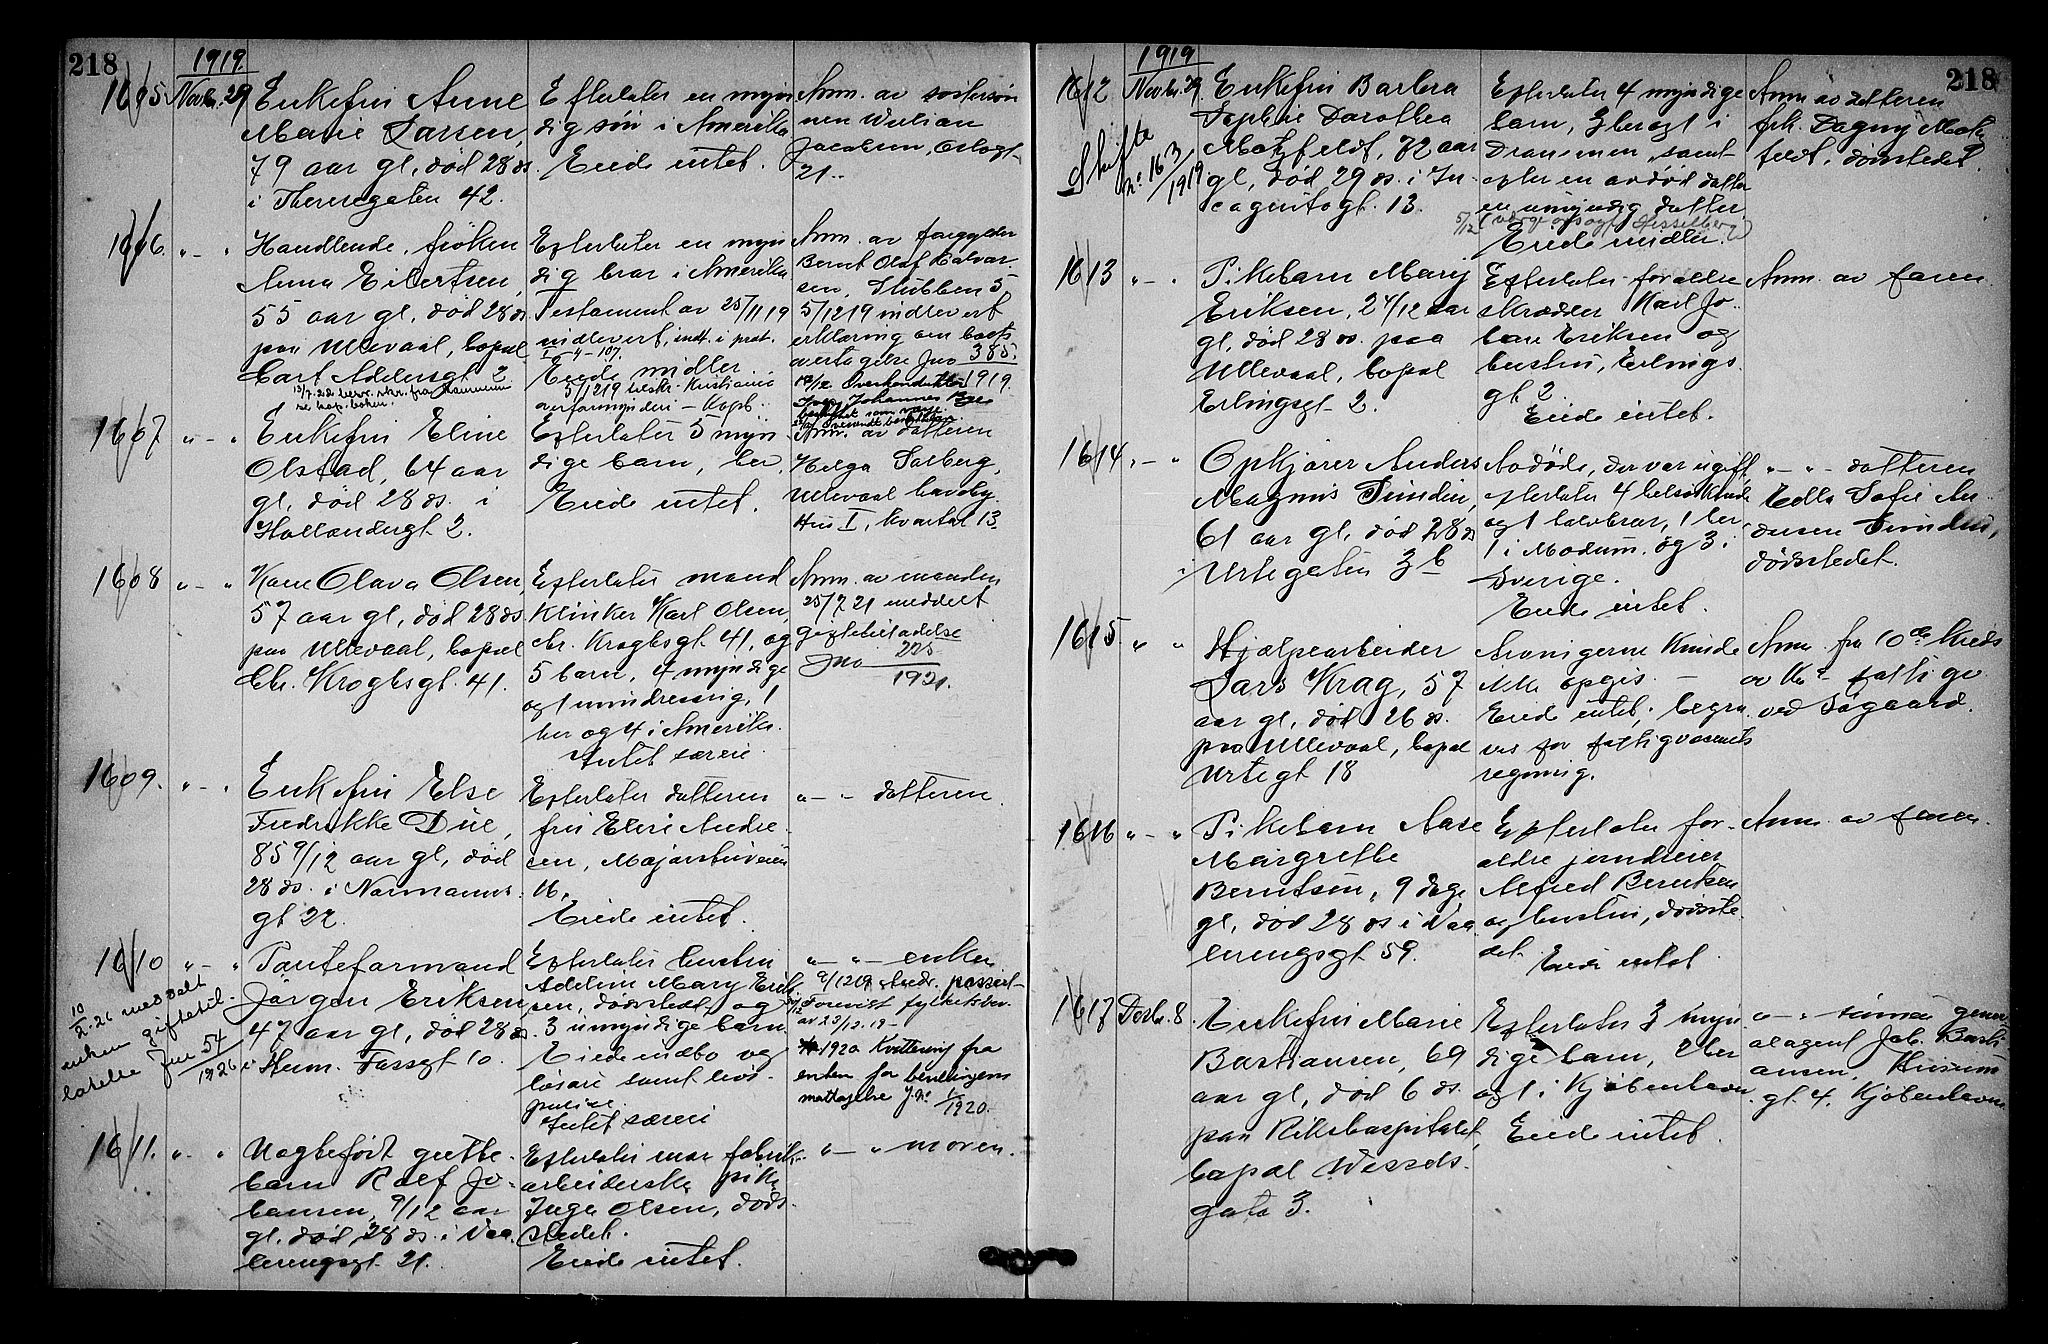 218
1919
1605
Novbr. 29
Enkefru Anne
Marie Larsen,
79 aar gl, død 28 ds.
i Theresegaten 42.
Efterlater en myn
dig søn i Amerika
Eiede intet.
Anm. av søstersøn
nen William
Jacobsen, Oslogt.
21.
1606. " - "
Handlende, frøken
Anna Eilertsen,
55 aar gl, død 28 ds
paa Ullevaal, bopæl
Carl Adelersgt 2
Efterlater en myn
dig bror i Amerika
Testament av 25/11 19
indlevert, indt. i prot.
I - 4 - 107.
Eiede midler.
5/12 19 beskr. Kristiania
overformynderi - Kopb.
Anm. av forgylder
Bernt Olaf Halvor
sen, Stubben 5
5/12 19 indlevert
erklæring om boets
overtagelse Jno 385
1919.
1607 " - "
Enkefru Eline
Olstad, 64 aar
gl, død 28 ds. i
Hollendergt 2.
Efterlater 5 myn
dige barn, her,
Eiede intet.
Anm. av datteren
Helga Solberg,
Ullevaal haveby
Hus I, kvartal 13
1608 " - "
Kone Olava Olsen,
57 aar gl, død 28 ds
paa Ullevaal, bopæl
Chr. Kroghsgt. 41.
Efterlater mand
Klinker Karl Olsen,
Chr. Kroghsgt. 41, og
5 barn, 4 myndige
og 1 mindreaarig, 1
her og 4 i Amerika.
Intet særeie.
Anm. av manden
25/7 21 meddelt
giftetilladelse
Jno 225
1921.
1609. " - "
Enkefru Else
Fredrikke Due,
85 9/12 aar gl, død
28 ds. i Normanns
gt 22.
Efterlater datteren
fru Elise Andre
sen, Majorstuveien
16.
Eiede intet.
" - " datteren.
1610 " - "
10/2.26 meddelt
enken giftetil-
ladelse Jno 54
1926
Panteformand
Jørgen Eriksen
47 aar gl, død 28 ds
i Herm. Fossgt 10.
Efterlater hustru
Adeline Mary Erik
sen, dødsstedet, og
3 umyndige barn.
Eiede indbo og
løsøre samt livs
polise.
Intet særeie
" - " enken
9/12 19
1920 Kvittering fra
enken for bevillingens
mottagelse J.no
1920.
1611. " - "
Uegtefødt gutte
barn Rolf Jo
hansen, 9/12 aar
gl, død 28 ds. i Vaa
lerengsgt. 21.
Efterlater mor fabrik
arbeiderske pike
Inga Olsen, døds
stedet.
Eiede intet.
" - " moren.
218
1919
1612
Novbr. 29
Skifte
no. 163/1919
Enkefru Barbra
Sophie Dorothea
Motzfeldt, 72 aar
gl, død 29 ds. i In
cognitogt. 13.
Efterlater 4 myndige
barn, 3 her og 1 i
Drammen, samt
efter en avdød datter
en umyndig datter
Eiede midler.
Anm av datteren
frk. Dagny Motz
feldt, dødsstedet.
1613 " - "
Pikebarn Mary
Eriksen, 2 4/12 aar
gl, død 28 ds. paa
Ullevaal, bopæl
Erlingsgt. 2.
Efterlater forældre
skrædder Karl Jo-
han Eriksen og
hustru, Erlings
gt 2.
Eiede intet.
Anm. av faren
1614 " - "
Opkjører Anders
Magnus Sundin,
61 aar gl, død 28 ds
i Urtegaten 3 b
Avdøde, der var ugift,
efterlater 4 helsøskende
og 1 halvbror, 1 her,
1 i Modum og 3 i
Sverige.
Eiede intet.
" - " datteren
Edla Sofie An
dersen Sundin,
dødsstedet.
1615. " "
Hjælpearbeider
Lars Krag, 57
aar gl, død 26 ds.
paa Ullevaal, bopæl
Urtegt 18
Arvingerne kunde
ikke opgis. -
Eiede intet; begra
ves for fattigvæsenets
regning.
Anm. fra 10de Kreds
av Kra fattigv
ved Søgaard.
1616 " - "
Pikebarn Aase
Margrethe
Berntsen, 9 dage
gl, død 28 ds i Vaa
lerengsgt. 59.
Efterlater for-
ældre jerndreier
Alfred Berntsen
og hustru, dødsste
det.
Eiede intet
Anm. av faren.
1617 Decbr. 8.
Enkefru Marie
Bastiansen, 69
aar gl, død 6 ds.
paa Rikshospitalet,
bopæl Wessels
gate 3.
Efterlater 3 myn
dige barn, 2 her
og 1 i Kjøbenhavn.
Eiede intet.
" - " sønnen gener
alagent Jab. Basti
ansen,
gt. 4. Kjøbenhavn